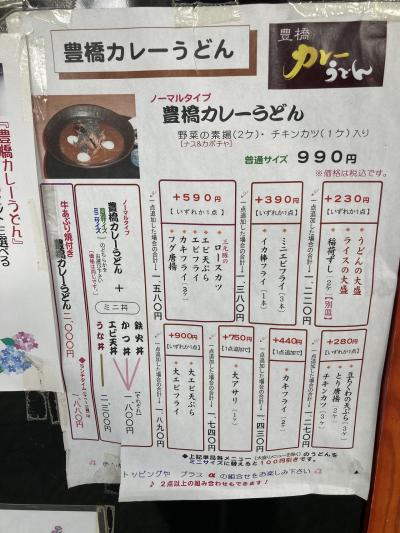 豊橋カレーうどん
豊橋
カレー
うどん
ノーマルタイプ
豊橋カレーうどん
野菜の素揚(2ケ)・チキンカツ(1ケ)入り
[ナス&カボチャ]
普通サイズ 990円
※価格は税込です。
+230円
【いずれか1点】
うどんの大盛
ライスの大盛
稲荷ずし(2ケ)【別皿】
一点追加した場合の合計→一、二二〇円
+390円
【いずれか1点】
ミニエビフライ(3本)
イカ棒フライ(1本)
一点追加した場合の合計→一、三八〇円
+590円
【いずれか1点】
三元豚の
ロースカツ
エビ天ぷら
エビフライ
カキフライ(3ケ)
フグ唐揚
一点追加した場合の合計→一、五八〇円
+280円
【いずれか1点】
半ちくわの天ぷら(3ケ)
とり唐揚(2ケ)
チキンカツ(3ケ)
一点追加した場合の合計→一、二七〇円
+440円
【1点追加で】
カキフライ(2ケ)
一点追加した場合の合計→一、四三〇円
+750円
【1点追加で】
大アサリ(1ケ)
一点追加した場合の合計→一、七四〇円
+900円
【いずれか1点】
大エビ天ぷら
大エビフライ
一点追加した場合の合計→一、八九〇円
ノーマルタイプ
豊橋カレーうどん
普通サイズ
ミニサイズ
のどちらかをお選び下さい
【価格は同じです】
+
ミニ丼
鉄火丼
かつ丼
エビ天丼
うな丼
【それぞれ】
一、八〇〇円
二、三〇〇円
牛あぶり焼付き
豊橋カレーうどん 二、〇〇〇円
◆ランチタイム
一、八八〇円
◆上記単品麺メニュー(大盛りメニューを除く)のうどんを
ミニサイズに替えると100円引きです。
トッピングや プラスαの組合せをお楽しみ下さい
♪ 2点以上の組み合わせもできます!
『豊橋カレーうどん』